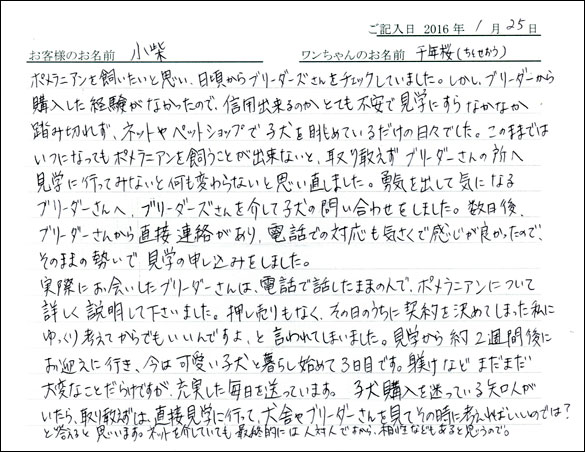 ご記入日 2016 年 1 月 25 日
お客様のお名前 小柴 ワンちゃんのお名前 千年桜(ちとせおう)
ポメラニアンを飼いたいと思い、日頃からブリーダーズさんをチェックしていました。しかし、ブリーダーから
購入した経験がなかったので、信用出来るのかとても不安で見学にすらなかなか
踏み切れず、ネットやペットショップで子犬を眺めているだけの日々でした。このままでは
いつになってもポメラニアンを飼うことが出来ないと、取り敢えずブリーダーさんの所へ
見学に行ってみないと何も変わらないと思い直しました。勇気を出して気になる
ブリーダーさんへ、ブリーダーズさんを介して子犬の問い合わせをしました。数日後、
ブリーダーさんから直接連絡があり、電話での対応も気さくで感じが良かったので、
そのままの勢いで見学の申し込みをしました。
実際にお会いしたブリーダーさんは、電話で話したままの人で、ポメラニアンについて
詳しく説明して下さいました。押し売りもなく、その日のうちに契約を決めてしまった私に
ゆっくり考えてからでもいいんですよ、と言われてしまいました。見学から約2週間後に
お迎えに行き、今は可愛い子犬と暮らし始めて3日目です。躾けなどまだまだ
大変なことだらけですが、充実した毎日を送っています。子犬購入を迷っている知人が
いたら、取り敢えずは、直接見学に行って、犬舎やブリーダーさんを見てその時に考えればいいのでは?
と答えると思います。ネットを介していても最終的には人対人ですから、相性などもあると思うので。